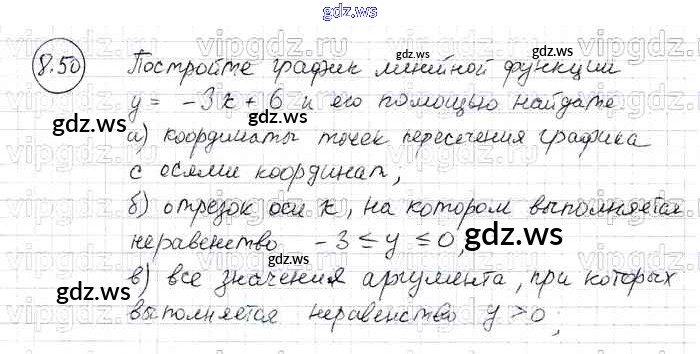 gdz.ws
8.50 Постройте график линейной функции
y = -3x + 6 и его помощью найдите
а) координаты точек пересечения графика
с осями координат,
б) отрезок оси x, на котором выполняется
неравенство -3 ≤ y ≤ 0,
в) все значения аргумента, при которых
выполняется неравенство y > 0;